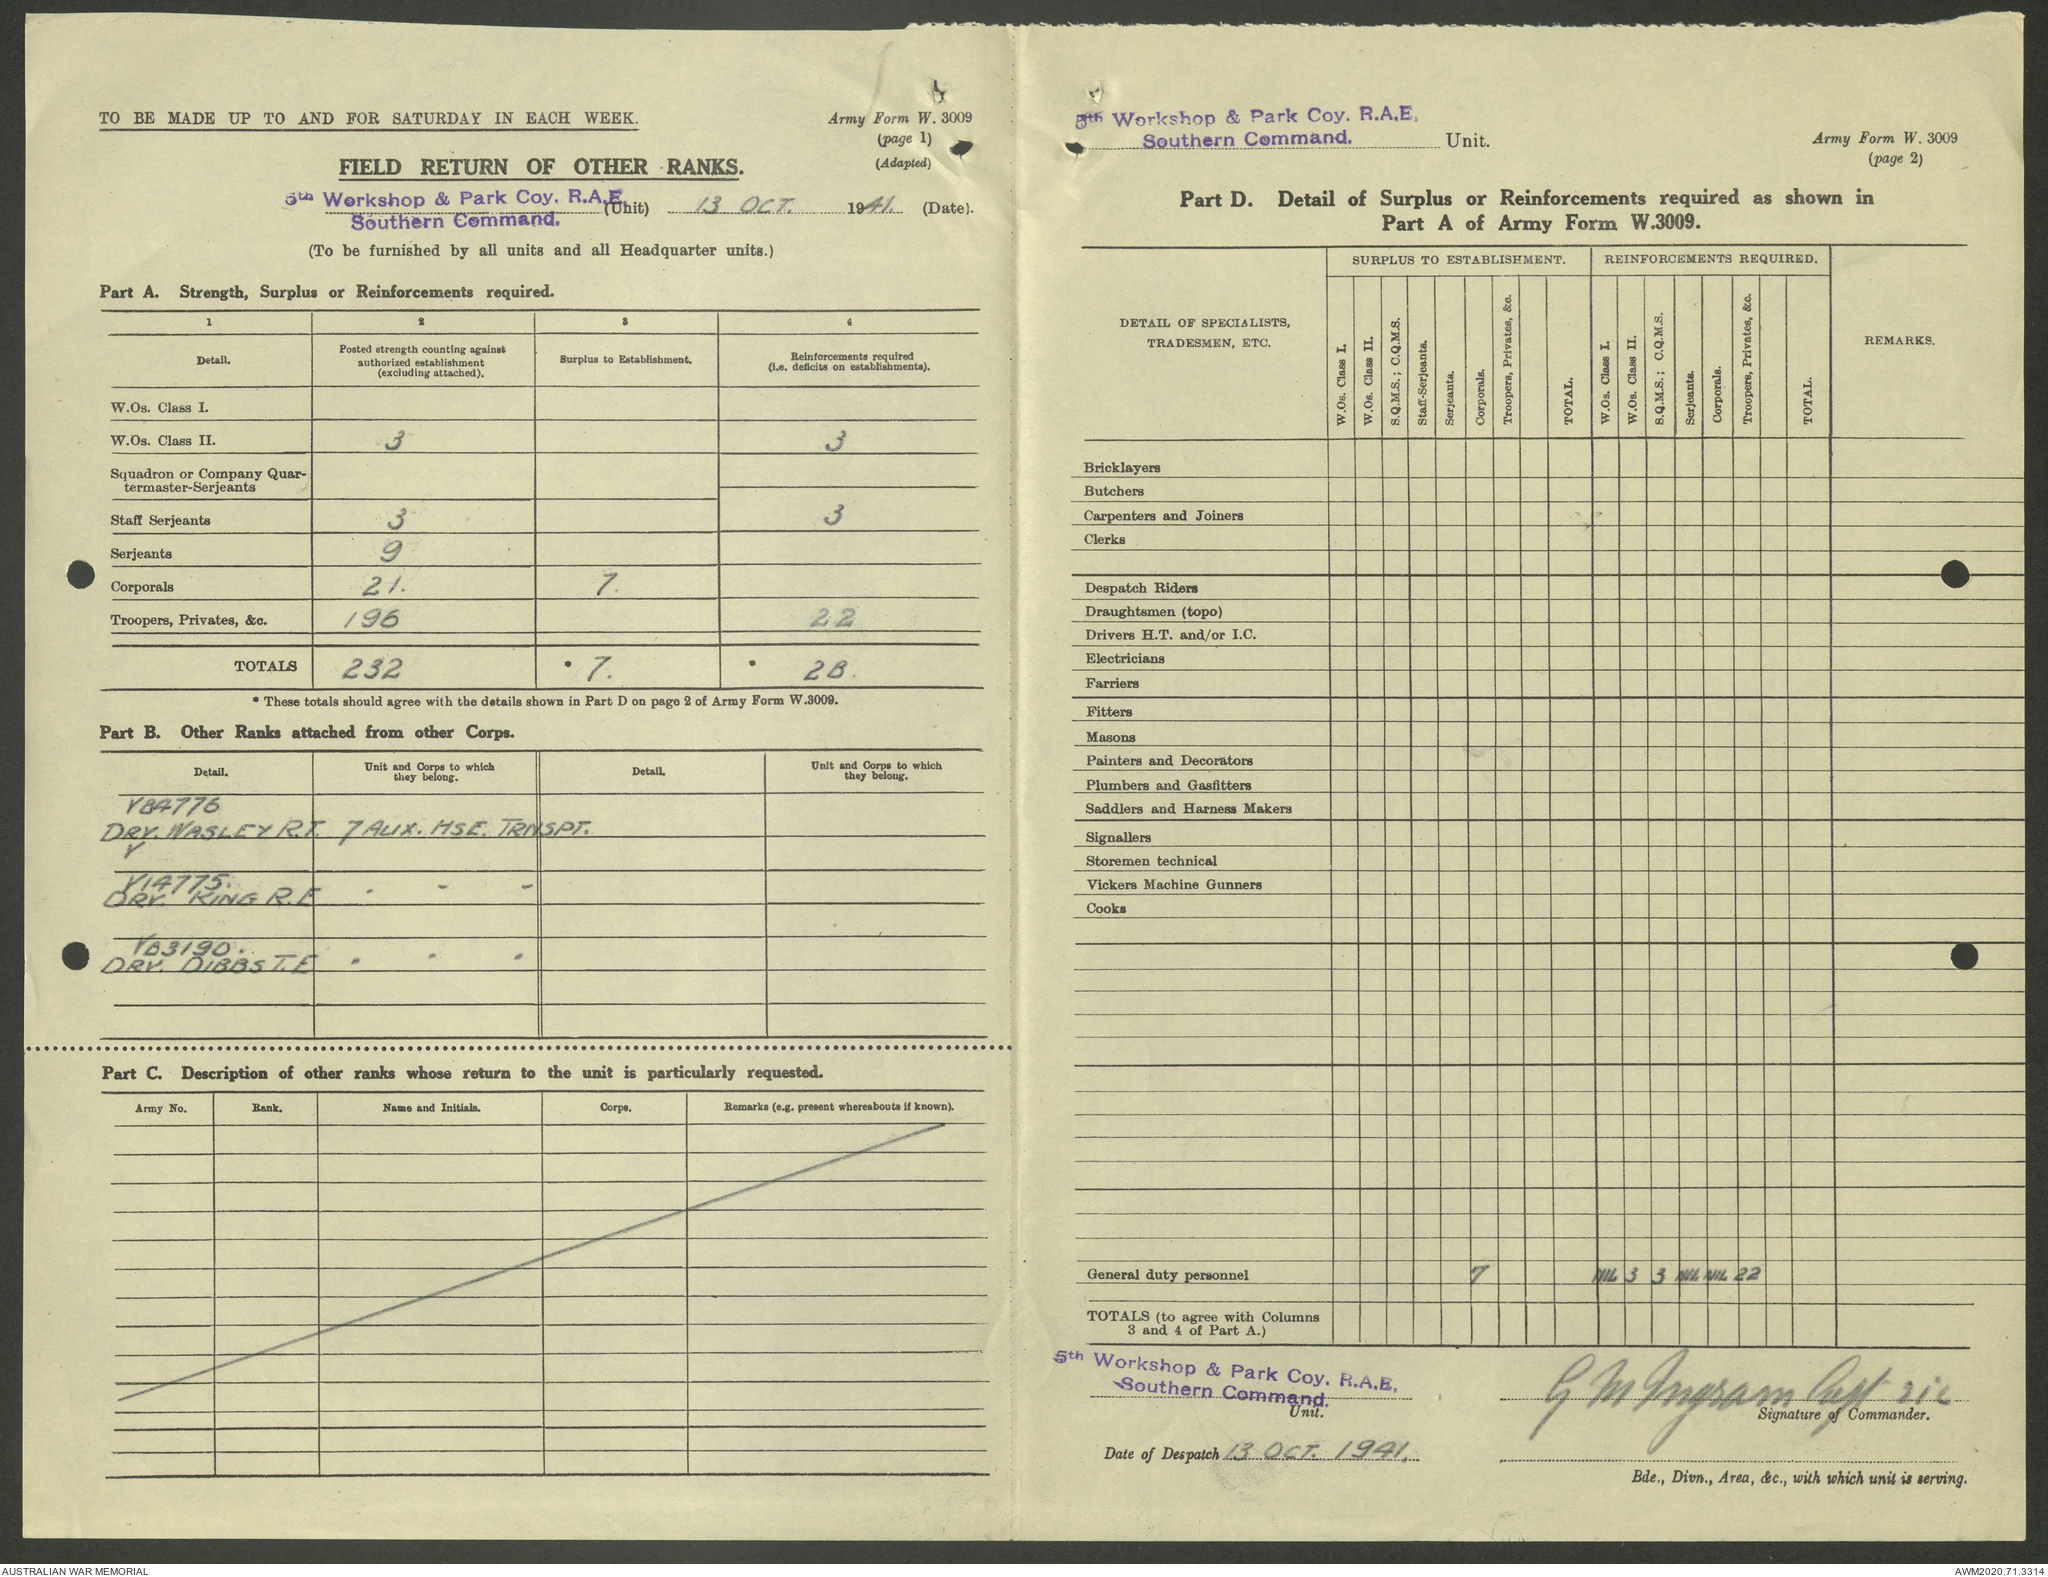 TO BE MADE UP TO AND FOR SATURDAY IN EACH WEEK.
Army Form W. 3009
(page 1)
(Adapted)
FIELD RETURN OF OTHER RANKS.
5th Workshop & Park Coy. R.A.E.
Southern Command.
(Unit) 13 OCT. 1941. (Date).
(To be furnished by all units and all Headquarter units.)
Part A. Strength, Surplus or Reinforcements required.
1 2 3 4
Detail.
Posted strength counting against
authorized establishment
(excluding attached).
Surplus to Establishment.
Reinforcements required
(i.e. deficits on establishments).
W.Os. Class I.
W.Os. Class II. 3 3
Squadron or Company Quar-
termaster-Serjeants
Staff Serjeants 3 3
Serjeants 9
Corporals 21. 7.
Troopers, Privates, &c. 196 22
TOTALS 232 * 7. * 28.
* These totals should agree with the details shown in Part D on page 2 of Army Form W.3009.
Part B. Other Ranks attached from other Corps.
Detail.
Unit and Corps to which
they belong.
Detail.
Unit and Corps to which
they belong.
V84776
DRV. WASLEY R.T. 7 AUX. HSE. TRNSPT.
V
V14775.
DRV. KING R.E - - -
V83190.
DRV. DIBBS T.E " " "
Part C. Description of other ranks whose return to the unit is particularly requested.
Army No. Rank. Name and Initials. Corps. Remarks (e.g. present whereabouts if known).
5th Workshop & Park Coy. R.A.E.
Southern Command. Unit.
Army Form W. 3009
(page 2)
Part D. Detail of Surplus or Reinforcements required as shown in
Part A of Army Form W.3009.
DETAIL OF SPECIALISTS,
TRADESMEN, ETC.
SURPLUS TO ESTABLISHMENT.
W.Os. Class I.
W.Os. Class II.
S.Q.M.S.; C.Q.M.S.
Staff-Serjeants.
Serjeants.
Corporals.
Troopers, Privates, &c.
TOTAL.
REINFORCEMENTS REQUIRED.
W.Os. Class I.
W.Os. Class II.
S.Q.M.S.; C.Q.M.S.
Serjeants.
Corporals.
Troopers, Privates, &c.
TOTAL.
REMARKS.
Bricklayers
Butchers
Carpenters and Joiners
Clerks
Despatch Riders
Draughtsmen (topo)
Drivers H.T. and/or I.C.
Electricians
Farriers
Fitters
Masons
Painters and Decorators
Plumbers and Gasfitters
Saddlers and Harness Makers
Signallers
Storemen technical
Vickers Machine Gunners
Cooks
General duty personnel 7 NIL 3 3 NIL NIL 22
TOTALS (to agree with Columns
3 and 4 of Part A.)
5th Workshop & Park Coy. R.A.E.
Southern Command.
Unit.
G M Ingram Capt
Signature of Commander.
Date of Despatch 13 OCT. 1941.
Bde., Divn., Area, &c., with which unit is serving.
AUSTRALIAN WAR MEMORIAL
AWM2020.71.3314